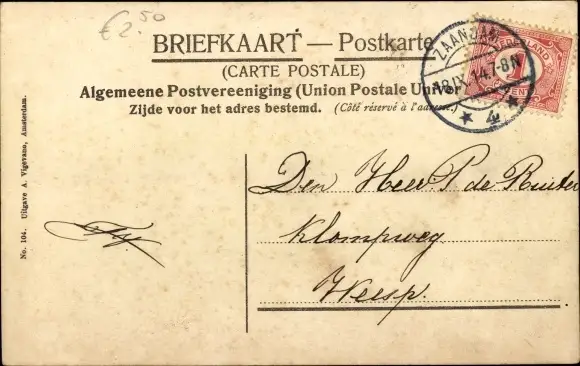 € 2.50
BRIEFKAART — Postkarte
(CARTE POSTALE)
Algemeene Postvereeniging (Union Postale Univer
Zijde voor het adres bestemd. (Côté réservé à l'adresse.)
ZAANDAM
18 IX 14.7-8N
4
NEDERLAND
1
CENT
No. 104. Uitgave A. Vigevano, Amsterdam.
Den Heer P. de Ruiter
Klompweg
Weesp.